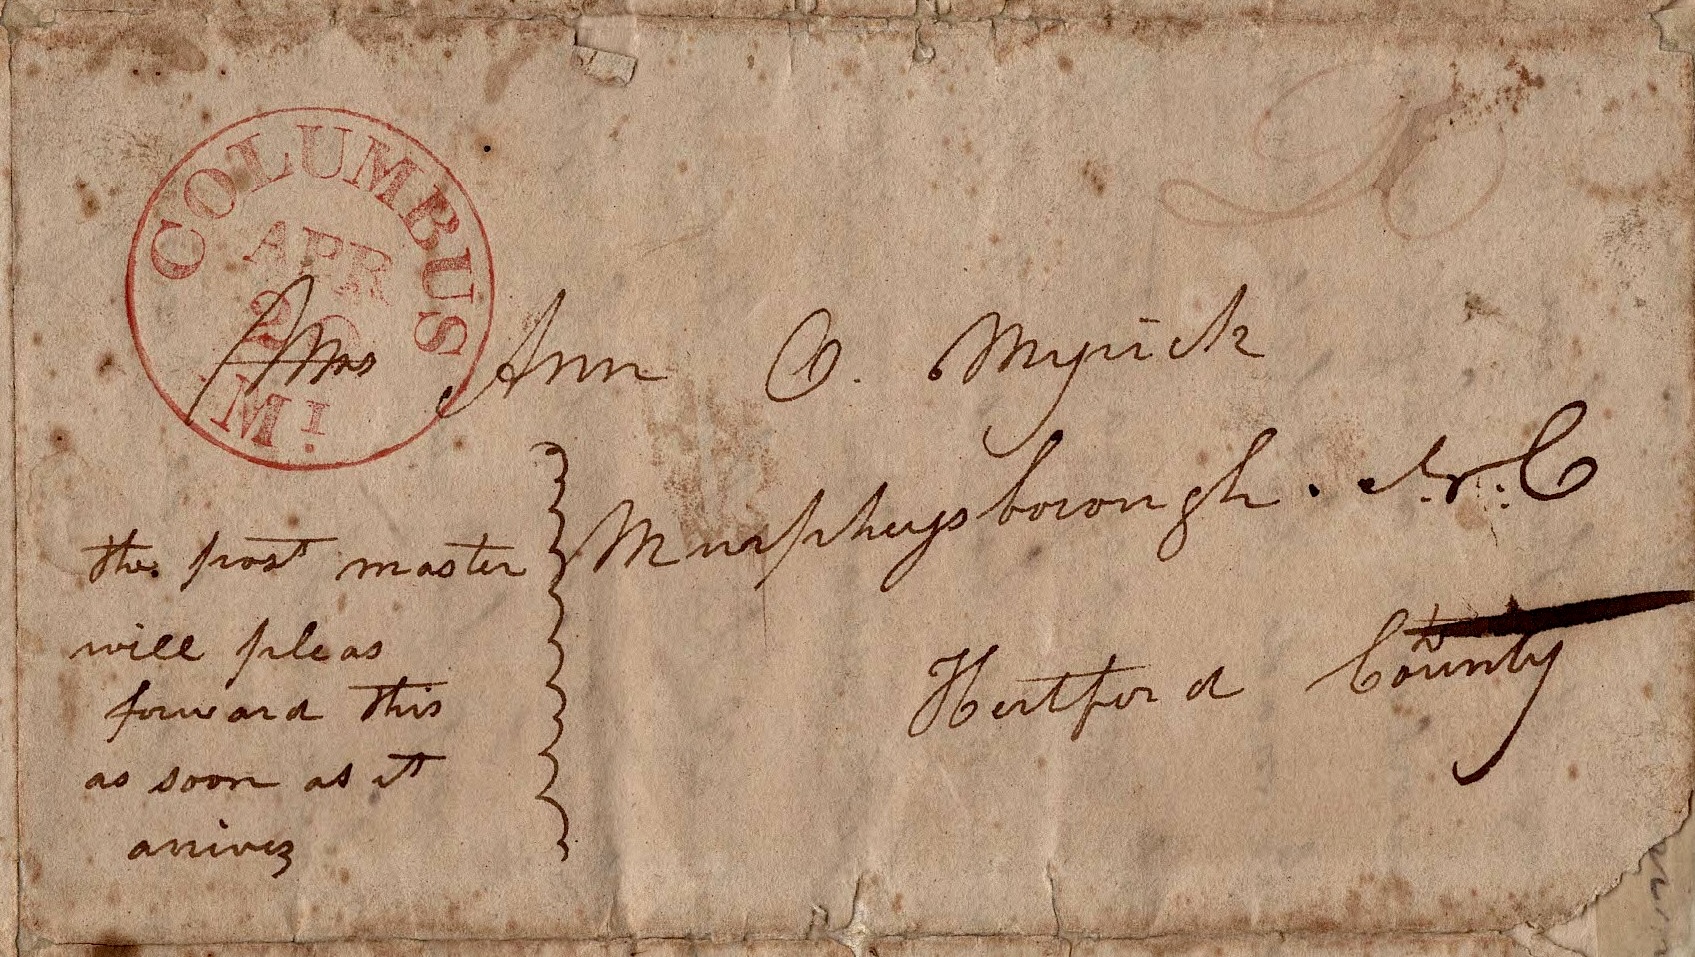 COLUMBUS
APR
20
Mi.
Mrs Ann O. Myrick
Murpheysborough. N.C
Hertford County
the post master
will pleas
forward this
as soon as it
arrives